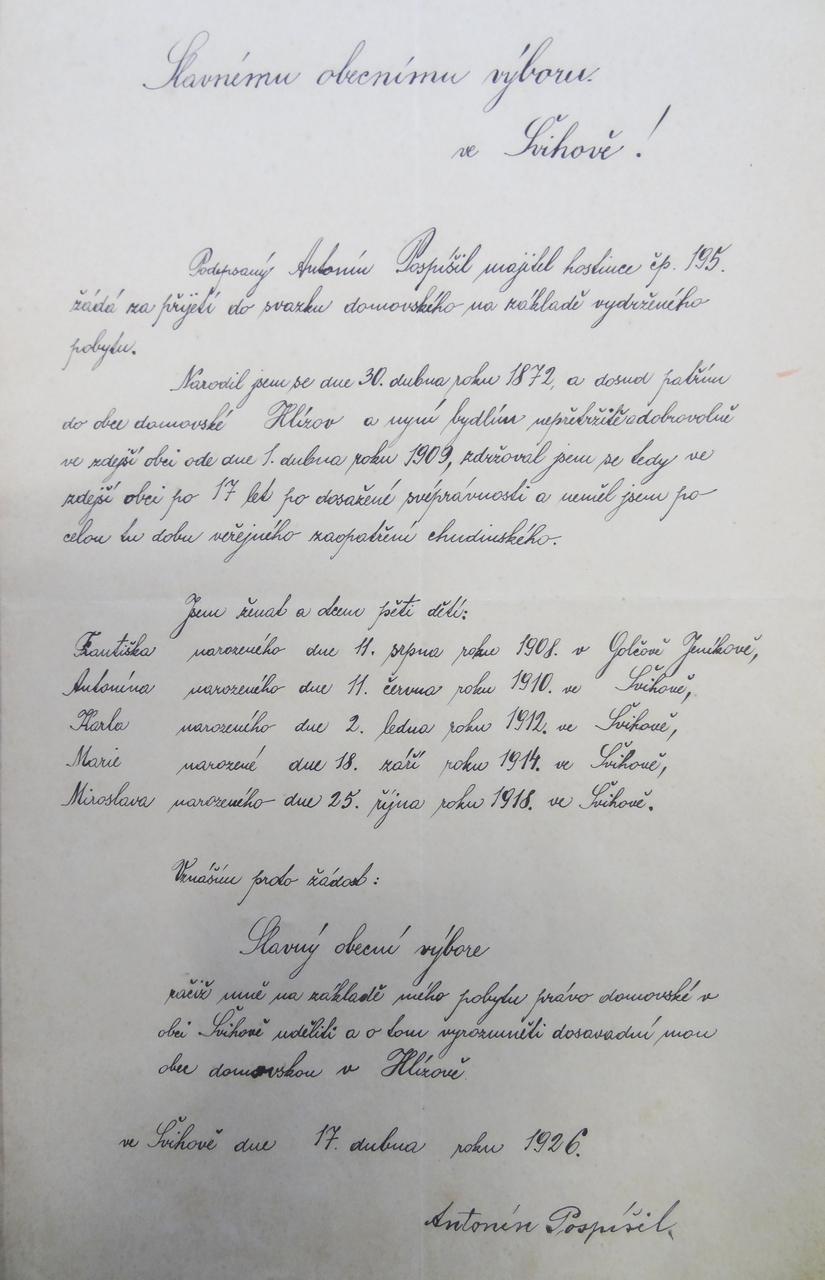 Slavnému obecnímu výboru.
ve Švihově!
Podepsaný Antonín Pospíšil majitel hostince čp. 195.
žádá za přijetí do svazku domovského na základě vydrženého
pobytu.
Narodil jsem se dne 30. dubna roku 1872, a dosud patřím
do obce domovské Hlízov a nyní bydlím nepřetržitě a dobrovolně
ve zdejší obci ode dne 1. dubna roku 1909, zdržoval jsem se tedy ve
zdejší obci po 17 let po dosažené svéprávnosti a neměl jsem po
celou tu dobu veřejného zaopatření chudinského.
Jsem ženat a otcem pěti dětí:
Františka narozeného dne 11. srpna roku 1908. v Golčově Jeníkově,
Antonína narozeného dne 11. června roku 1910. ve Švihově,
Karla narozeného dne 2. ledna roku 1912. ve Švihově,
Marie narozené dne 18. září roku 1914. ve Švihově,
Miroslava narozeného dne 25. října roku 1918. ve Švihově.
Vznáším proto žádost:
Slavný obecní výbore
račiž mně na základě mého pobytu právo domovské v
obci Švihově uděliti a o tom vyrozuměti dosavadní mou
obec domovskou v Hlízově
ve Švihově dne 17. dubna roku 1926.
Antonín Pospíšil.